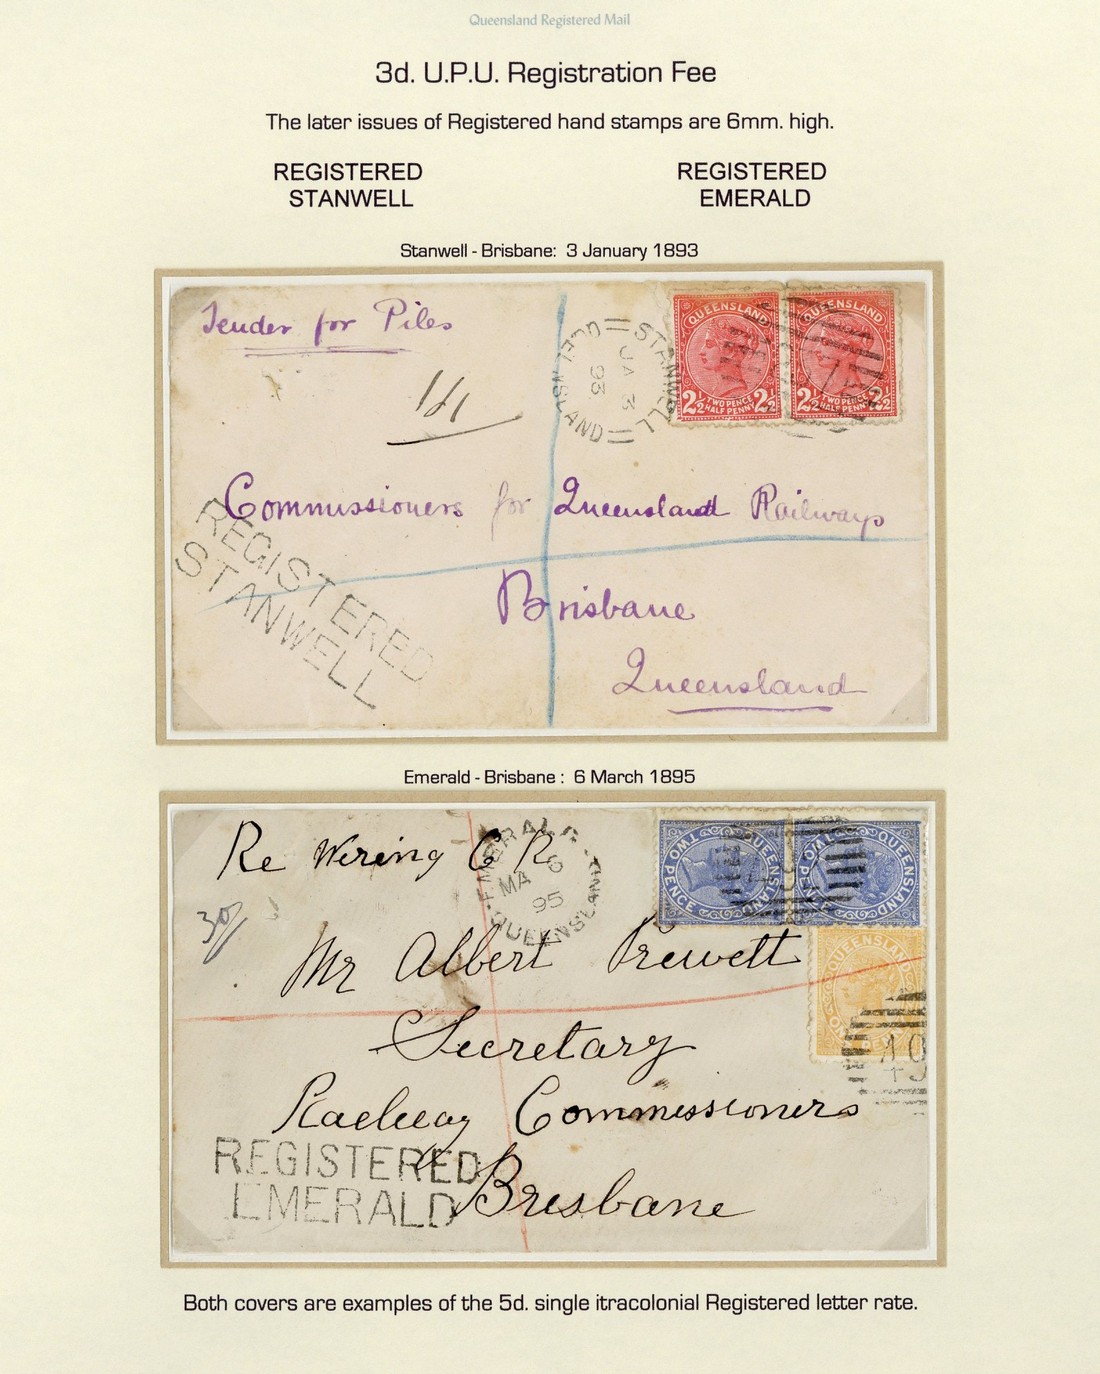 Queensland Registered Mail
3d. U.P.U. Registration Fee
The later issues of Registered hand stamps are 6mm. high.
REGISTERED
STANWELL
REGISTERED
EMERALD
Stanwell - Brisbane: 3 January 1893
Tender for Piles
STANWELL
JA 3
93
QUEENSLAND
QUEENSLAND
2½ TWO PENCE HALF PENNY 2½
QUEENSLAND
2½ TWO PENCE HALF PENNY 2½
Commissioners for Queensland Railways
REGISTERED
STANWELL
Brisbane
Queensland
Emerald - Brisbane : 6 March 1895
Re Wiring C R
EMERALD
MA 6
95
QUEENSLAND
QUEENSLAND
TWO PENCE
QUEENSLAND
TWO PENCE
QUEENSLAND
ONE PENNY
Mr Albert Prewett
Secretary
Railway Commissioners
REGISTERED
EMERALD
Brisbane
Both covers are examples of the 5d. single itracolonial Registered letter rate.